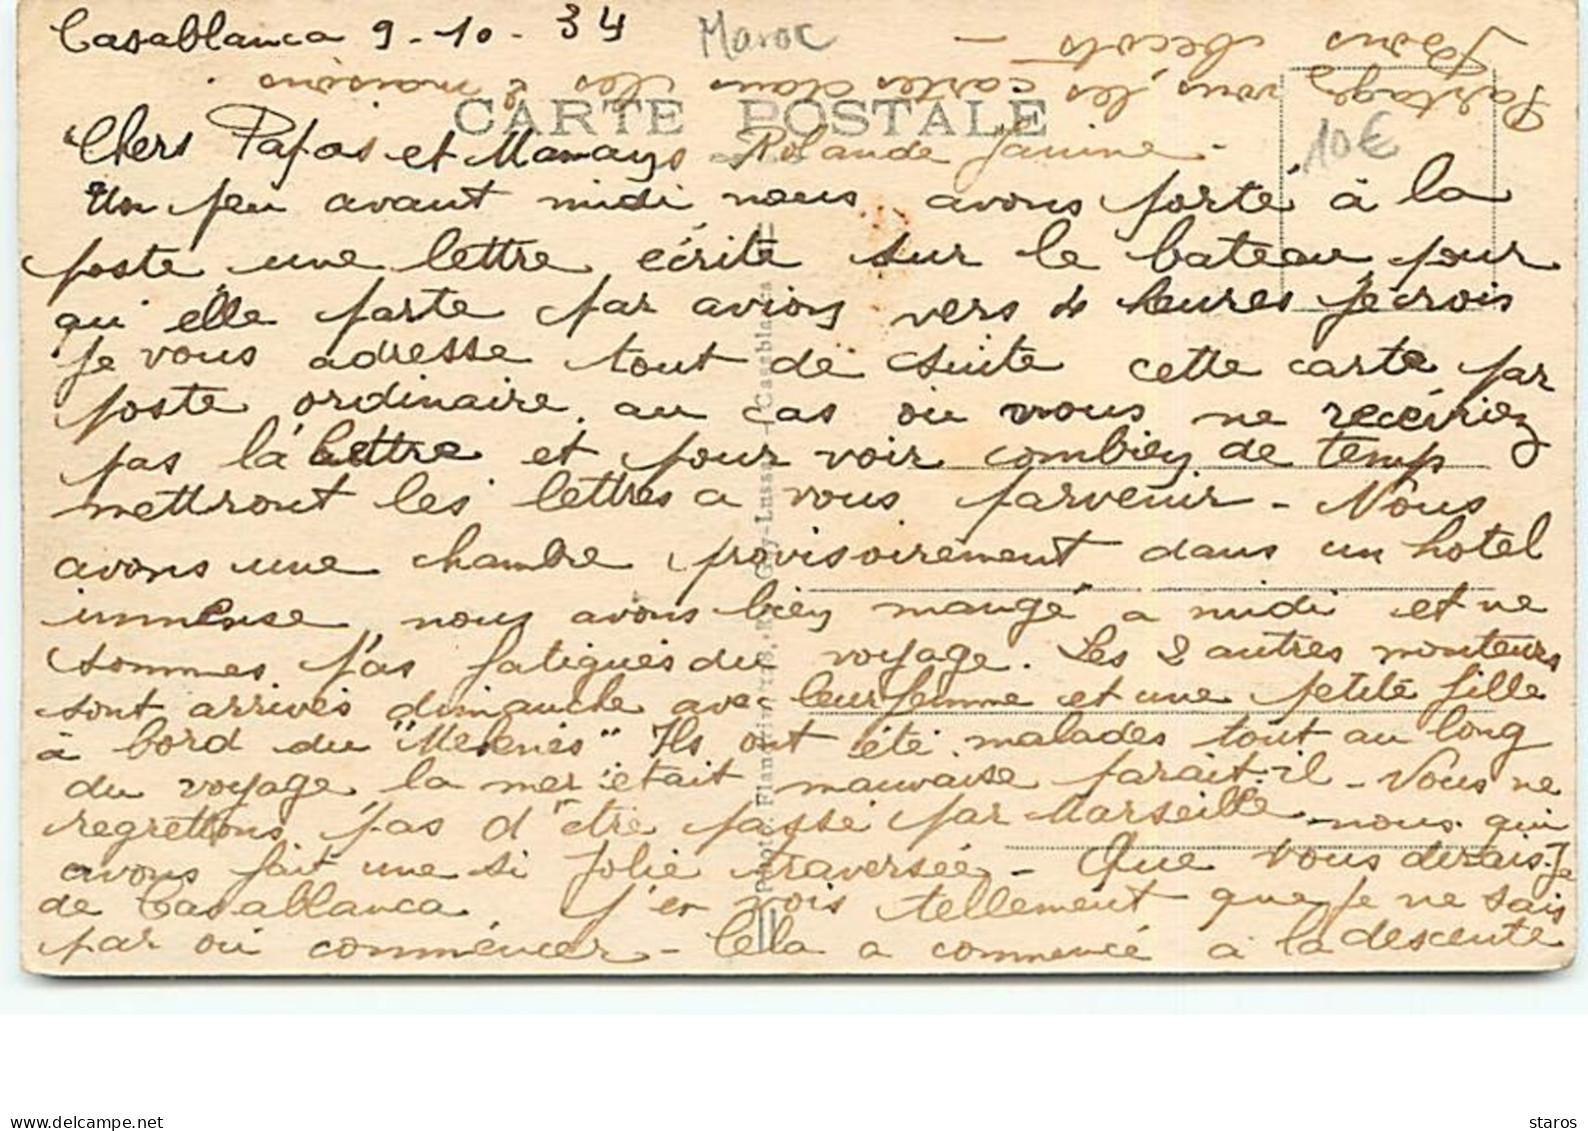 Casablanca 9-10-34 Maroc
Partagez vous les cartes dans les 2 maisons.
Bons bécots -
CARTE POSTALE
10€
Chers Papas et Mamans Rolande Janine -
Un peu avant midi nous avons porté à la
poste une lettre écrite sur le bateau pour
qu'elle parte par avion vers 4 heures je crois
je vous adresse tout de suite cette carte par
poste ordinaire au cas où vous ne recevriez
pas la lettre et pour voir combien de temp
mettront les lettres a vous parvenir - Nous
avons une chambre provisoirement dans un hotel
immense, nous avons bien mangé a midi et ne
sommes pas fatigués du voyage. Les 2 autres monteurs
sont arrivés dimanche avec leur femme et une petite fille
à bord du " " Ils ont été malades tout au long
du voyage la mer était mauvaise parait-il - Nous ne
regrettons pas d'être passé par Marseille nous qui
avons fait une si jolie traversée - Que vous dirais-je
de Casablanca, j'en vois tellement que je ne sais
par où commencer - Cela a commencé à la descente
Photo. Flandrin, Casablanca